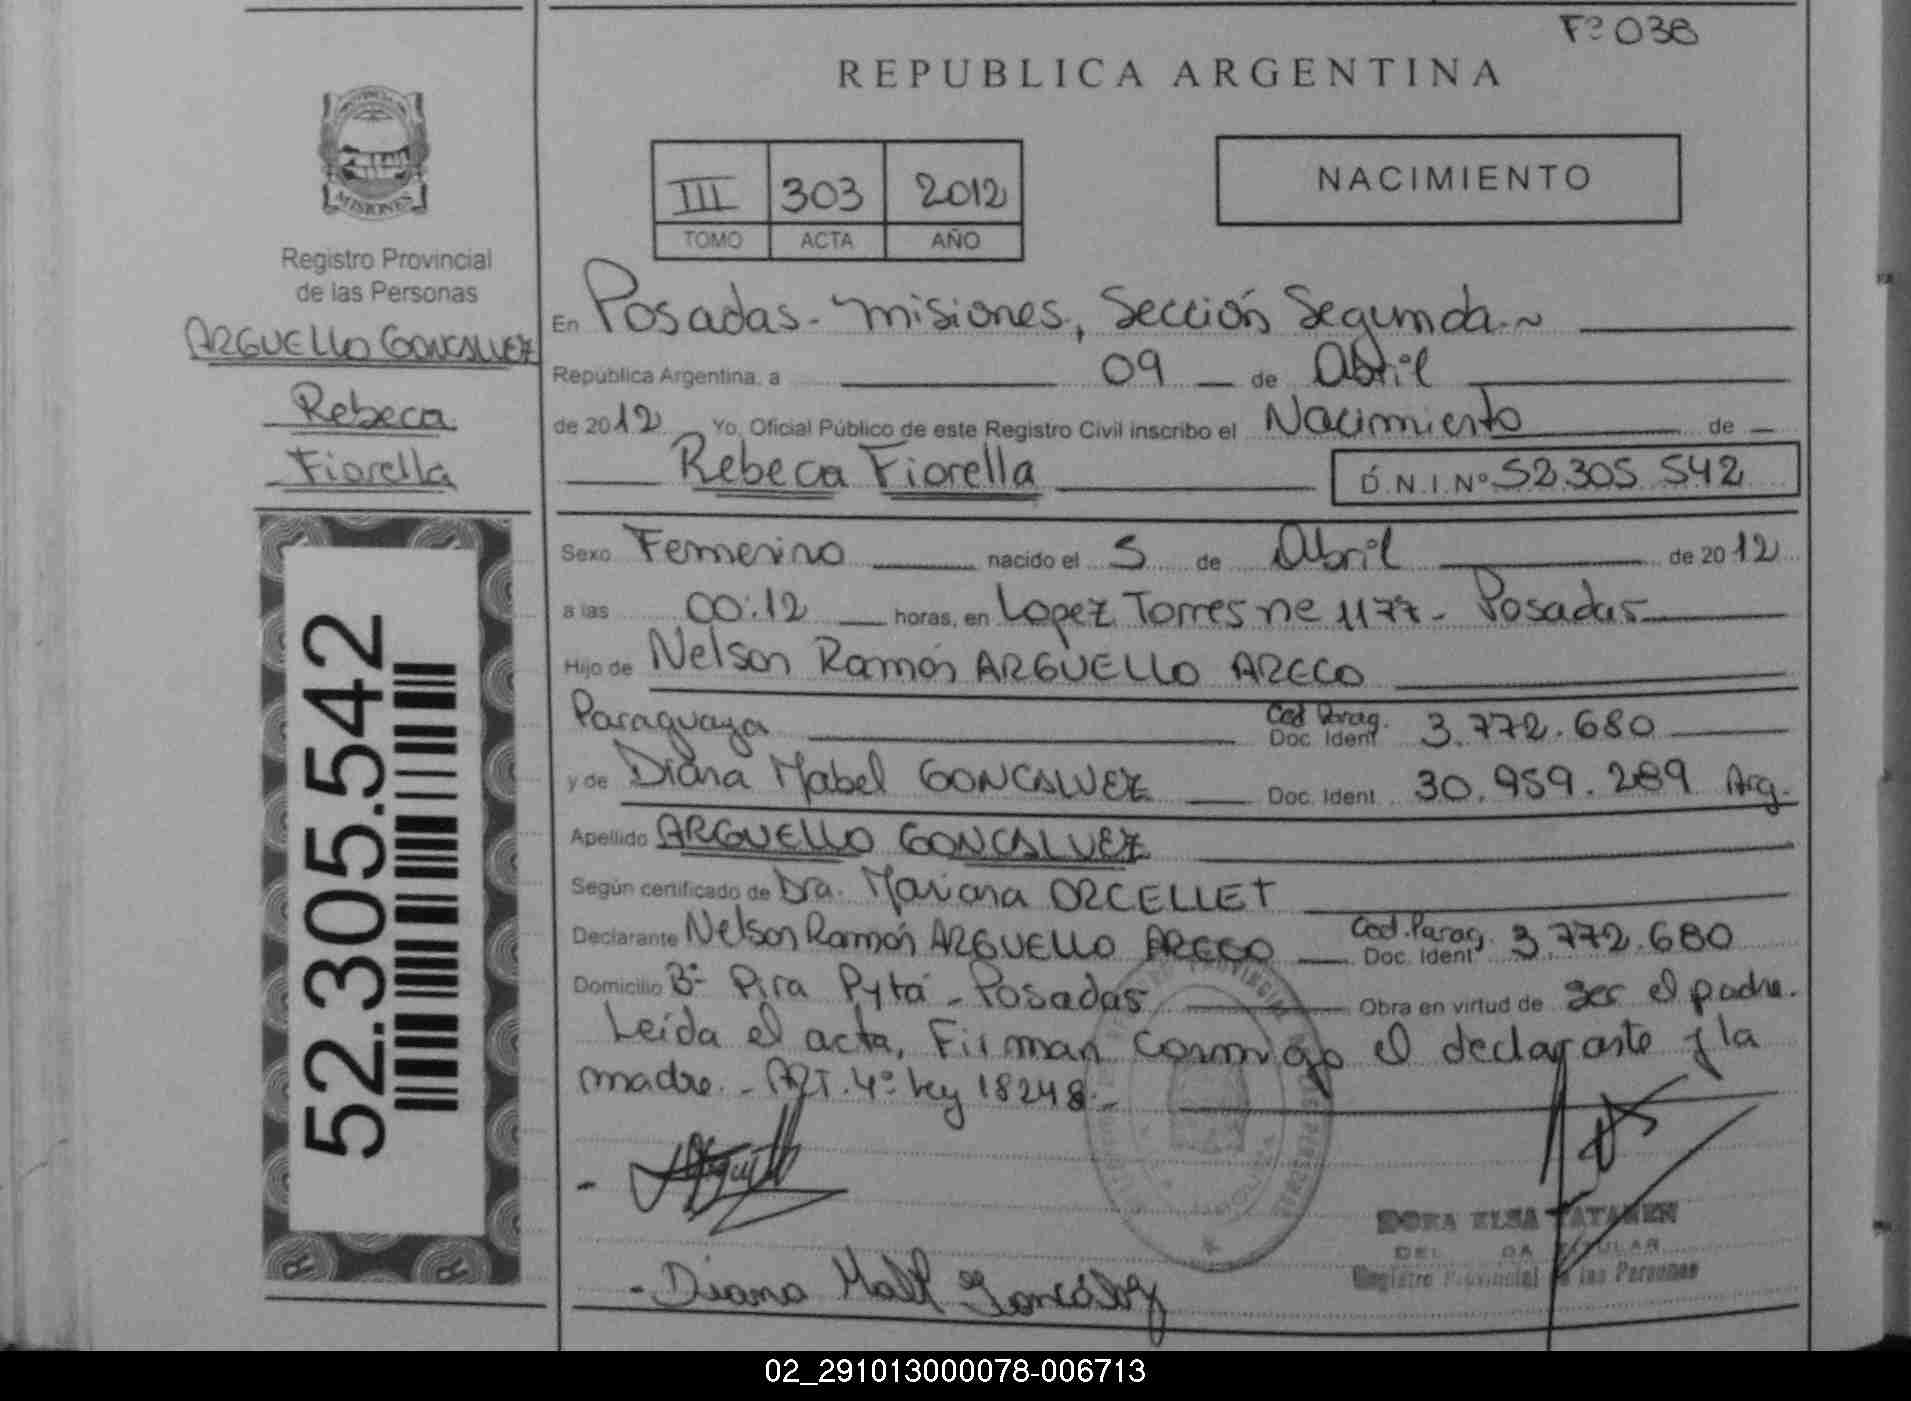 Fº 038
REPUBLICA ARGENTINA
MISIONES
Registro Provincial
de las Personas
ARGUELLO GONCALVEZ
Rebeca
Fiorella
52.305.542
III 303 2012
TOMO ACTA AÑO
NACIMIENTO
En Posadas - Misiones, Sección Segunda.~
República Argentina, a 09 de Abril
de 2012 Yo, Oficial Público de este Registro Civil inscribo el Nacimiento de
Rebeca Fiorella D.N.I.Nº 52.305 542
Sexo Femenino nacido el 5 de Abril de 2012
a las 00:12 horas, en Lopez Torres ne 1177 - Posadas
Hijo de Nelson Ramón ARGUELLO ARECO
Paraguaya Ced Parag. Doc. Ident 3.772.680
y de Diana Mabel GONCALVEZ Doc. Ident 30.959.289 Arg.
Apellido ARGUELLO GONCALVEZ
Según certificado de Dra. Mariana ORCELLET
Declarante Nelson Ramón ARGUELLO ARECO Ced. Parag. Doc. Ident 3.772.680
Domicilio Bº Pira Pytá - Posadas Obra en virtud de ser el padre.
Leída el acta, Firman conmigo el declarante y la
madre. - ART. 4º Ley 18248.-
- Diana Mabel Goncalvez
DORA ELSA
TITULAR
Registro Provincial de las Personas
02_291013000078-006713